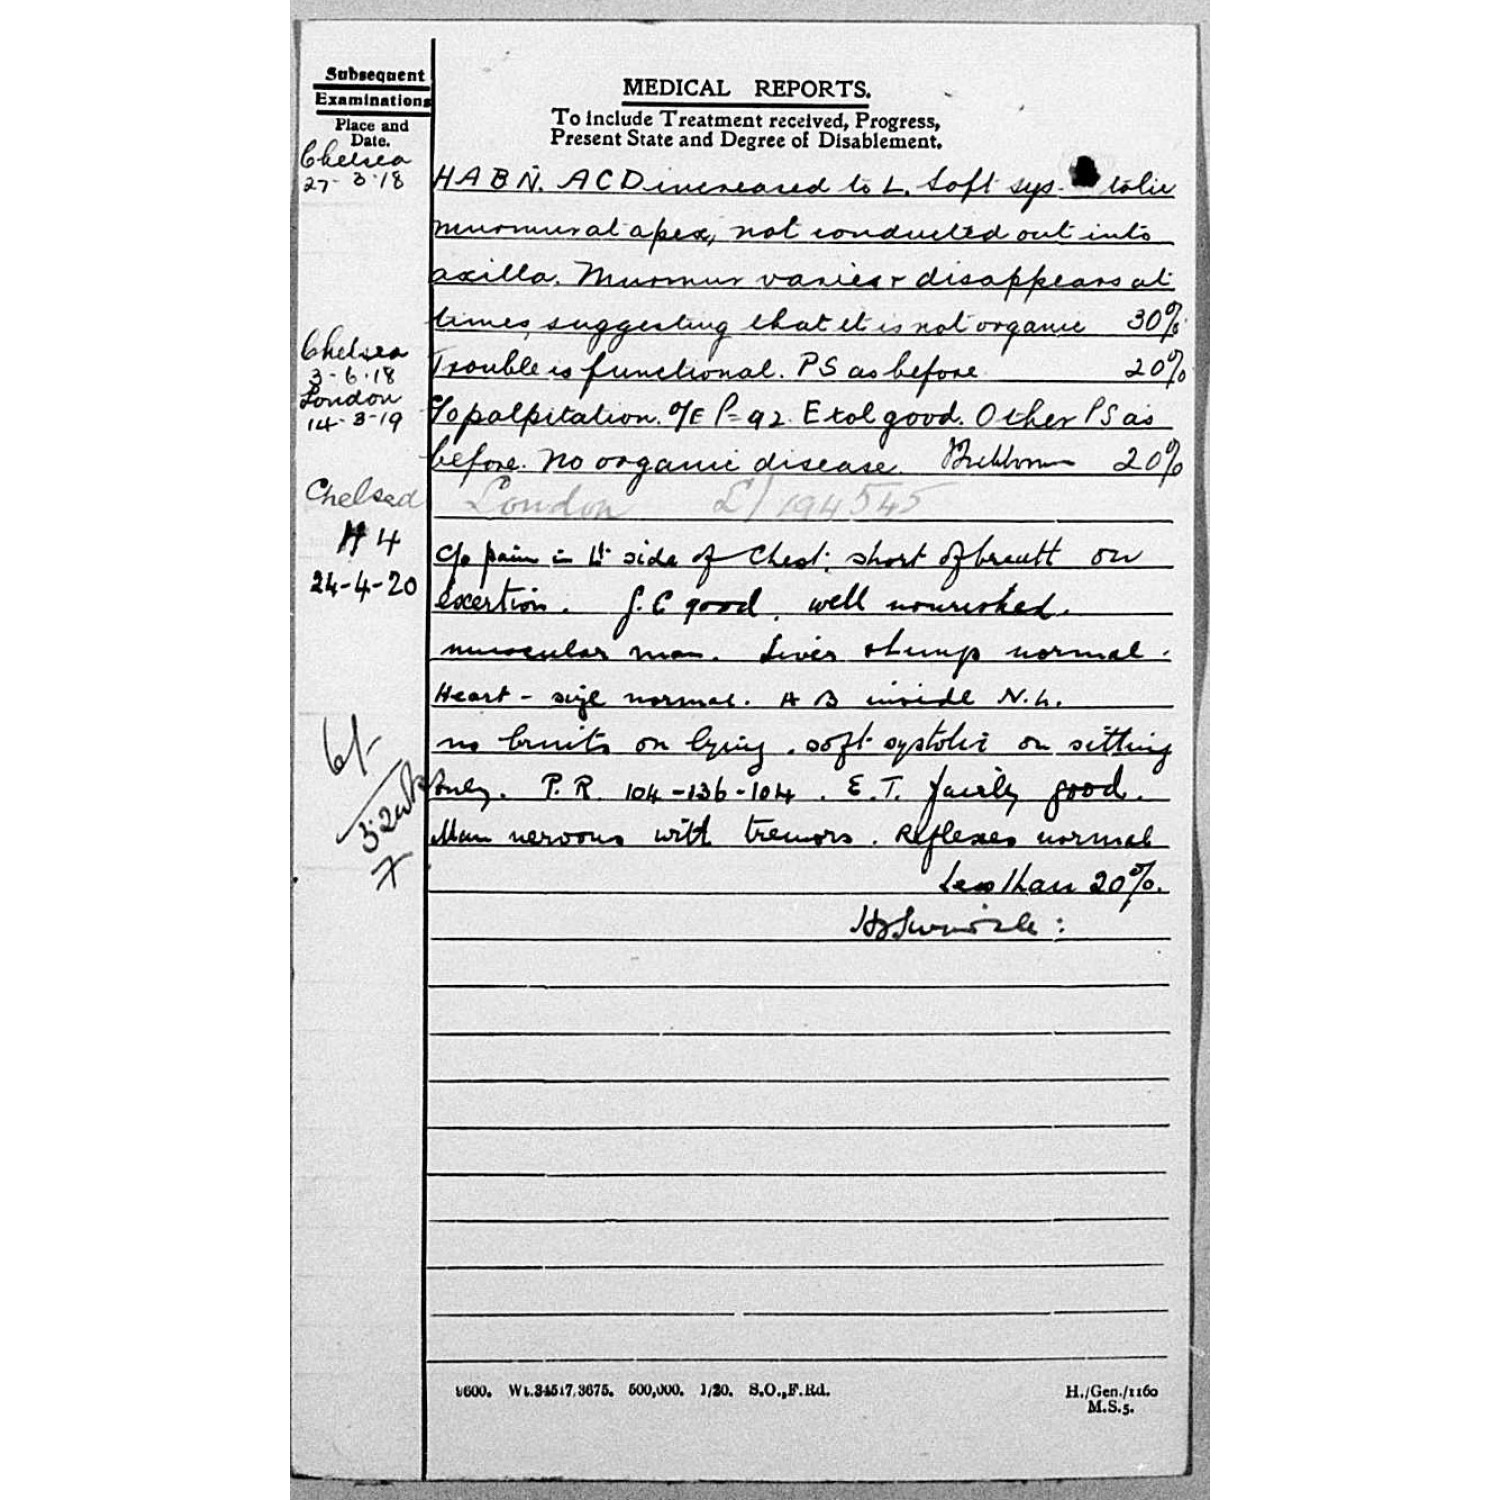 Subsequent
Examinations
Place and
Date.
MEDICAL REPORTS.
To include Treatment received, Progress,
Present State and Degree of Disablement.
Chelsea
27-3-18
HABN. ACD increased to L. Soft sys- tolic
murmur at apex, not conducted out into
axilla. Murmur varies & disappears at
times, suggesting that it is not organic 30%
Chelsea
3-6-18
Trouble is functional. PS as before 20%
London
14-3-19
c/o palpitation. O/E P=92. E tol good. Other PS as
before. No organic disease. 20%
Chelsea
London L/194545
H 4
24-4-20
c/o pain in Lt side of Chest: short of breath on
exertion. G.C good. well nourished.
muscular man. Liver & lungs normal.
Heart - size normal. A B inside N.L.
no bruits on lying. soft systolic on sitting
only. P.R. 104-136-104. E.T. fairly good.
Man nervous with tremors. Reflexes normal
Less than 20%.
6/-
9600. Wt.34517/3675. 500,000. 1/20. S.O.,F.Rd.
H./Gen./1160
M.S.5.